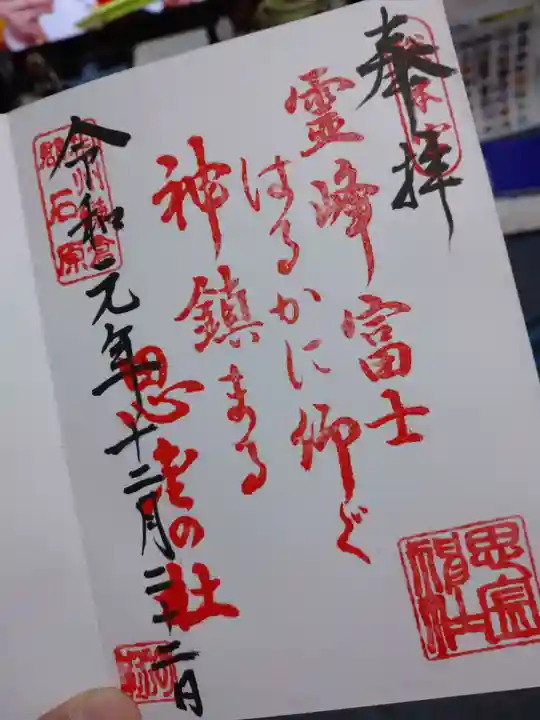 奉拝
靈峰富士
はるかに仰ぐ
神鎮まる
思金の社
令和元年十二月二十二月
石原